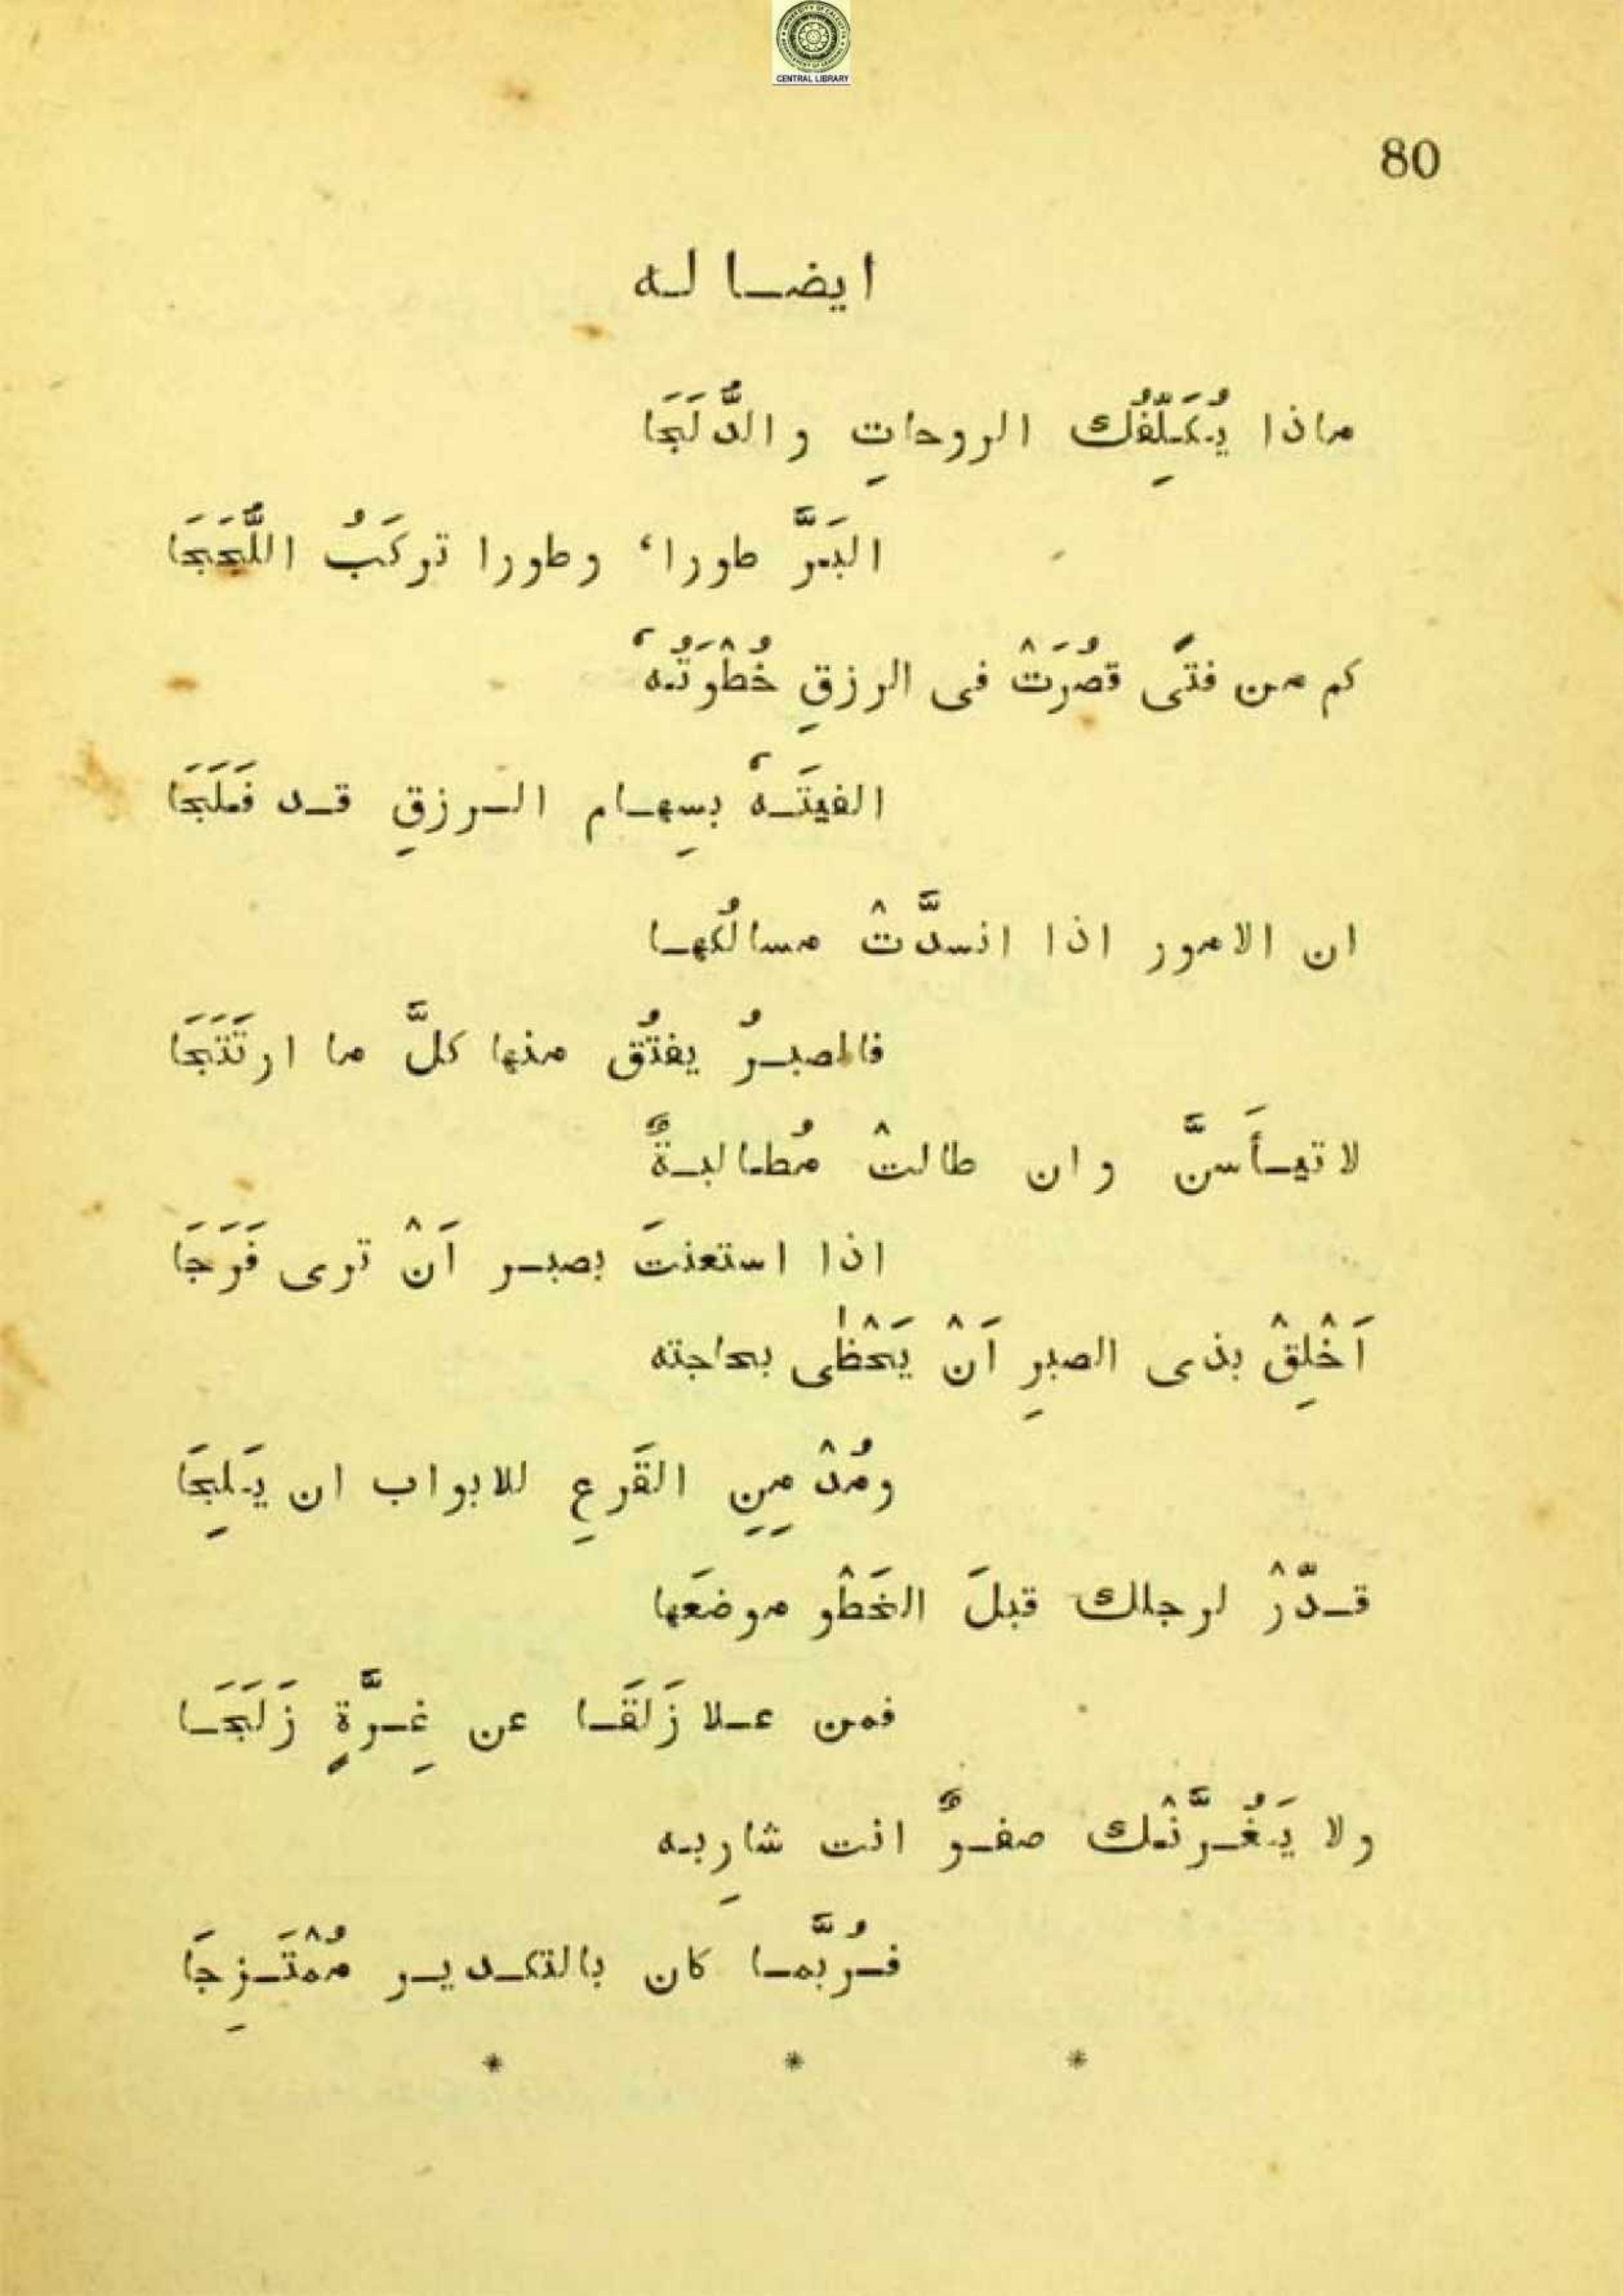 CENTRAL LIBRARY
80
ايضا له
ماذا يُكَلِّفُك الروحاتِ والدَّلَجَا
البَرَّ طورا، وطورا تركَبُ اللُّجَجَا
كم من فتًى قصُرَتْ فى الرزقِ خُطْوَتُهٗ
الفيتَهٗ بسِهام الرزقِ قد فَلَجَا
ان الامور اذا انسدَّتْ مسالُكها
فالصبرُ يفتُق منها كلَّ ما ارتَتَجَا
لا تيأَسنَّ وان طالتْ مُطالبةٌ
اذا استعنتَ بصبر اَنْ ترى فَرَجَا
اَخْلِقْ بذى الصبرِ اَنْ يَحْظٰى بحاجته
ومُدْمِنِ القَرعِ للابواب ان يَلِجَا
قدّرْ لرجلك قبلَ الخَطْو موضعَها
فمن علا زَلَقَا عن غِرَّةٍ زَلَجَا
ولا يَغُرَّنْك صفوٌ انت شارِبه
فرُبَّما كان بالتكدير مُمْتَزِجَا
* * *